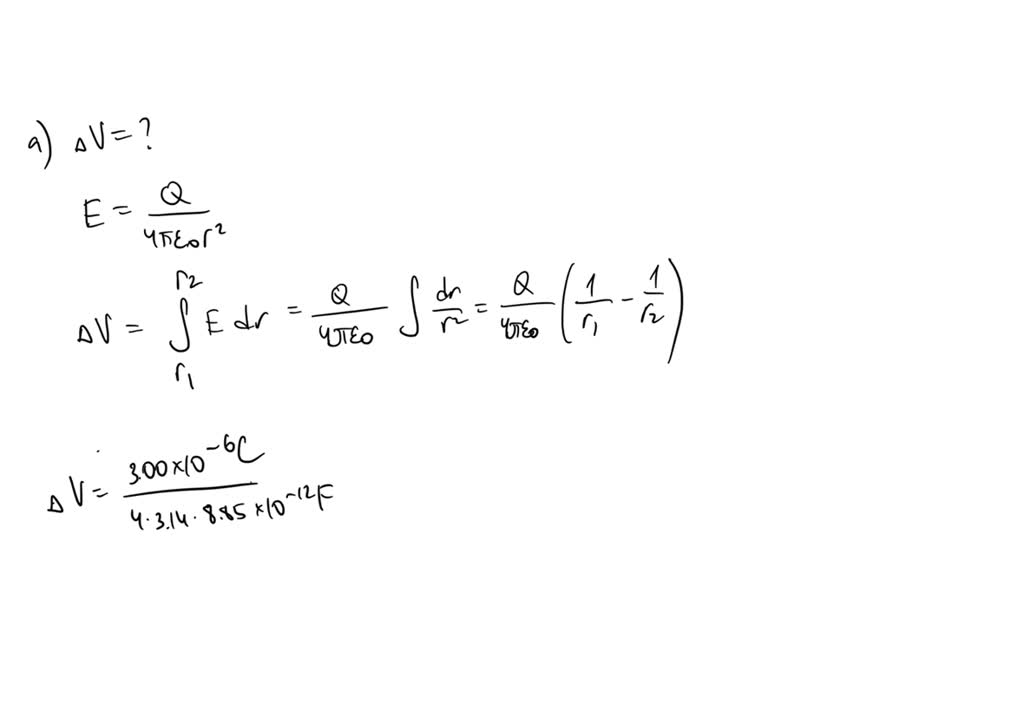 a) ΔV = ?
E = Q / 4πε₀r²
ΔV = ∫_{r₁}^{r₂} E dr = Q / 4πε₀ ∫ dr / r² = Q / 4πε₀ (1 / r₁ − 1 / r₂)
ΔV = 3.00×10⁻⁶C / 4·3.14·8.85×10⁻¹²F